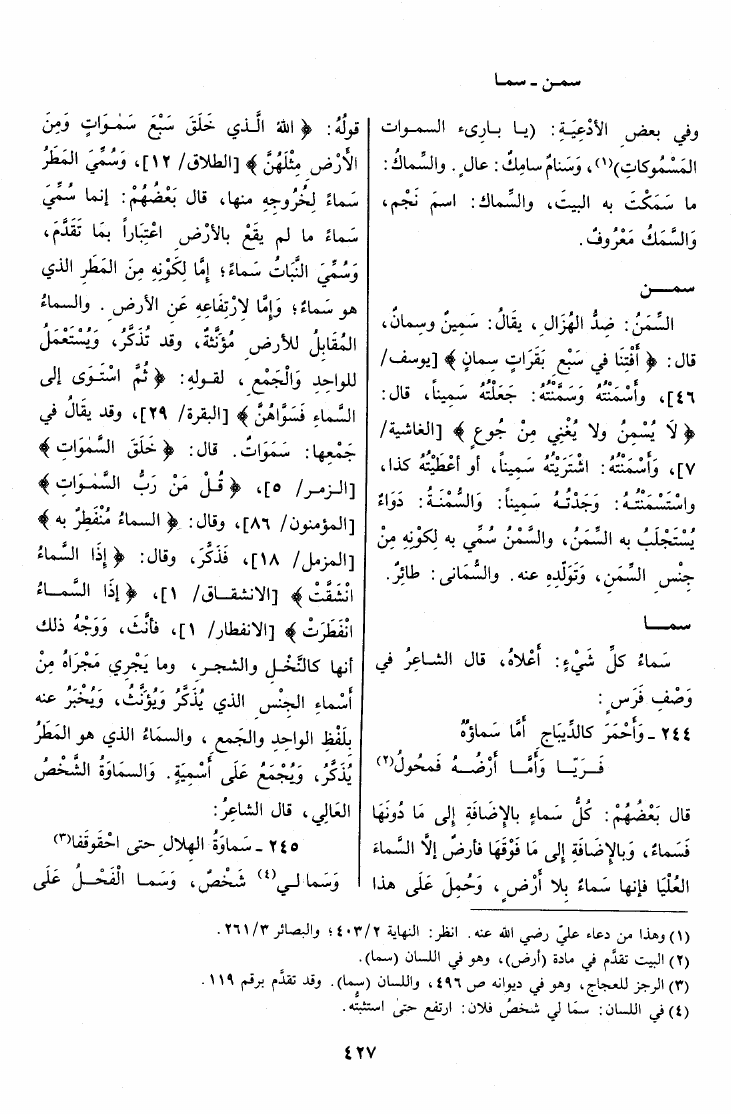 سمـن ـ سمـا
وفي بعض الأَدْعِيَةِ: (يـا بـارِىء السمـوات
المَسْمُوكاتِ)(١)، وَسَنامٌ سامِكٌ: عالٍ. والسِّماكُ:
ما سَمَكْتَ به البيتَ، والسِّماك: اسمَ نَجْمٍ،
وَالسَّمَكُ مَعْرُوفٌ.
سمـن
السِّمَنُ: ضِدُّ الهُزَالِ، يقَالُ: سَمِينٌ وسِمانٌ،
قال: ﴿ أَفْتِنَا في سَبْعِ بَقَرَاتٍ سِمانٍ ﴾ [يوسف/
٤٦]، وأَسْمَنْتُهُ وَسَمَّنْتُهُ: جَعَلْتُهُ سَمِيناً، قال:
﴿ لاَ يُسْمِنُ ولا يُغْنِي مِنْ جُوعٍ ﴾ [الغاشية/
٧]، وَأَسْمَنْتُهُ: اشْتَرَيْتُهُ سَمِيناً، أو أعْطَيْتُهُ كذا،
واسْتَسْمَنْتُـهُ: وَجَدْتُـهُ سَمِيناً: وَالسُّمْنَـةُ: دَوَاءٌ
يُسْتَجْلَبُ به السِّمَنُ، والسَّمْنُ سُمِّي به لِكوْنِهِ مِنْ
جِنْسِ السِّمَنِ، وَتَوَلُّدِهِ عنه. والسُّمَانى: طائِرٌ.
سمـا
سَماءُ كلِّ شَيْءٍ: أَعْلاهُ، قال الشاعِرُ في
وَصْفِ فَرَسٍ:
٢٤٤ ـ وَأَحْمَرَ كالدِّيباجِ أَمَّا سَماؤهُ
فَـرَيَّـا وَأَمَّـا أَرْضُـهُ فَمَحُولُ(٢)
قال بَعْضُهُمْ: كُلُّ سَماءٍ بالإِضَافَةِ إلى مَا دُونَهَا
فَسَماءٌ، وَبالإِضَافَةِ إلى مَا فَوْقَهَا فأرضٌ إلاَّ السَّماءَ
العُلْيَا فإِنها سَماءٌ بِلا أَرْضٍ، وَحُمِلَ عَلَى هذا
قولُهُ: ﴿ اللهُ الَّـذي خَلَقَ سَبْعَ سَمٰـوَاتٍ وَمِنَ
الأَرْضِ مِثْلَهُنَّ ﴾ [الطلاق/ ١٢]، وَسُمِّيَ المَطَرُ
سَماءً لِخُرُوجِهِ منها، قال بَعْضُهُمْ: إنما سُمِّيَ
سَماءً ما لم يقَعْ بالأَرْضِ اعْتِبَاراً بمَا تَقَدَّمَ،
وَسُمِّيَ النَّبَاتُ سَماءً؛ إمَّا لِكَوْنِهِ مِنَ المَطَرِ الذي
هو سَماءٌ؛ وَإمَّا لارْتِفَاعِهِ عَنِ الأرضِ. والسماءُ
المُقَابِلُ للأرضِ مُؤَنَّثَةٌ، وقد تُذَكَّرُ، وَيُسْتَعْمَلُ
للواحِدِ وَالْجَمْعِ، لقـولهِ: ﴿ ثُمَّ اسْتَـوَى إلى
السَّماءِ فَسَوَّاهُنَّ ﴾ [البقرة/ ٢٩]، وقد يقَالُ في
جَمْعِها: سَمَوَاتٌ. قال: ﴿ خَلَقَ السَّمٰوَاتِ ﴾
[الـزمـر/ ٥]، ﴿ قُـلْ مَنْ رَبُّ السَّمٰـوَاتِ ﴾
[المؤمنون/ ٨٦]، وقال: ﴿ السماءُ مُنْفَطِرٌ به ﴾
[المزمل/ ١٨]، فَذَكَّرَ، وقال: ﴿ إذَا السَّماءُ
انْشَقَّتْ ﴾ [الانشقـاق/ ١]، ﴿ إذَا السَّمـاءُ
انْفَطَرَتْ ﴾ [الانفطار/ ١]، فأنَّثَ، وَوَجْهُ ذلك
أنها كالنَّخْـلِ والشجـرِ، وما يَجْرِي مَجْرَاهُ مِنْ
أَسْماءِ الجِنْسِ الذي يُذَكَّرُ وَيُؤَنَّثُ، وَيُخْبَرُ عنه
بِلَفْظِ الواحِدِ والجَمعِ، والسمَاءُ الذي هو المَطَرُ
يُذَكَّرُ، وَيُجْمَعُ عَلَى أَسْمِيَةٍ. وَالسمَاوَةُ الشَّخْصُ
العَالِي، قال الشاعِرُ:
٢٤٥ ـ سَماوَةُ الهِلالِ حتى احْقَوْقَفا(٣)
وَسَما لـي(٤) شَخْصٌ، وَسَمـا الْفَحْـلُ عَلَى
(١) وهذا من دعاء عليّ رضي الله عنه. انظر: النهاية ٤٠٣/٢؛ والبصائر ٢٦١/٣.
(٢) البيت تقدَّم في مادة (أرض)، وهو في اللسان (سما).
(٣) الرجز للعجاج، وهو في ديوانه ص ٤٩٦، واللسان (سما). وقد تقدَّم برقم ١١٩.
(٤) في اللسان: سمَا لي شخصُ فلان: ارتفع حتىٰ استثبتُّه.
٤٢٧